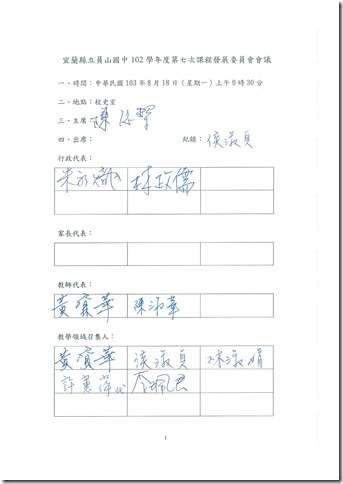 宜蘭縣立員山國中 102 學年度第七次課程發展委員會會議
一、時間：中華民國 103 年 8 月 18 日（星期一）上午 9 時 30 分
二、地點：校史室
三、主席：陳
四、出席： 紀錄：侯淑貞
行政代表：
朱 林政儒
家長代表：
教師代表：
黃寶華 陳淑華
教學領域召集人：
黃寶華 侯淑貞 林淑娟
許蕙萍代 李珮君
1